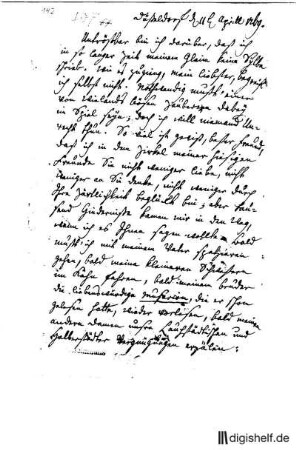 Düsseldorf d. 11t April 1769.
Untröstbar bin ich darüber, daß ich
in so langer Zeit meinem Gleim keine Sylbe
schrieb. Wie es zugieng, mein Liebster, begreif
ich selbst nicht. Nothwendig muß einer
von Wielands bösen Zauberern dabey
im Spiel seyn, doch ich will niemand Un-
recht thun. So viel ist gewiß, bester Freund,
daß ich in dem Zirkel meiner hiesigen
Freunde Sie nicht weniger liebe, nicht
weniger an Sie denke, nicht weniger durch
Ihre Zärtlichkeit beglückt bin; aber tau-
send Hindernisse kamen mir in den Weg,
wenn ich es Ihnen sagen wollte. Bald
mußt ich mit meinem Vater spatzieren
gehen, bald meine kleineren Schwestern
im Kahn fahren, bald meinem Bruder
die liebenswürdige Musarion, die er schon
gelesen hatte, wieder vorlesen, bald meinen
andern Damen unsre Lauchstädtischen und
Halberstädter Vergnügungen erzälen;
digishelf.de